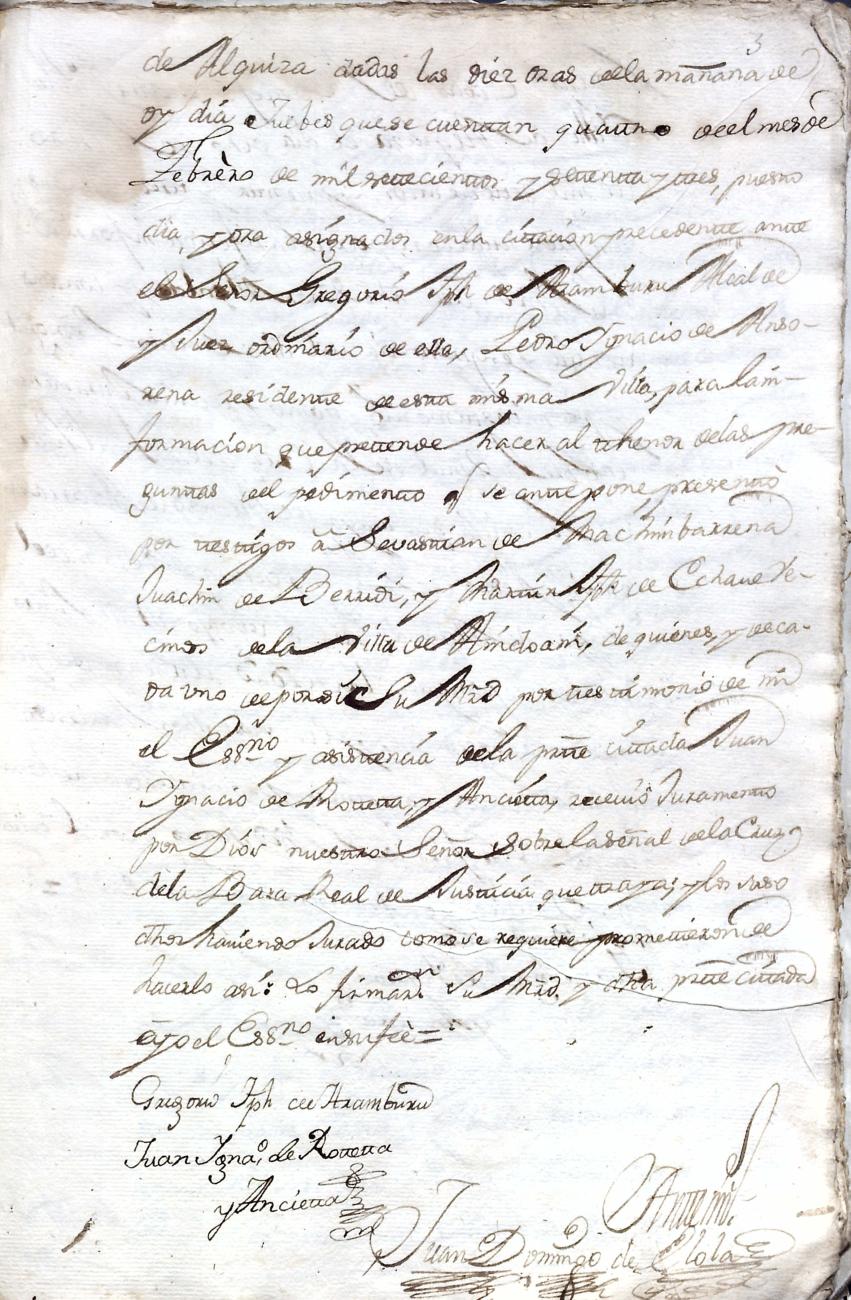 3
de Alquiza dadas las diez oras dela mañana de
oy dia Juebes que se cuentan quatro de el mes de
Febrero de mil setecientos y setenta y tres, puesto
dia, y ora asignados en la citacion precedente ante
el Señor Gregorio Jph de Aramburu Alcalde
y Juez ordinario de ella, Pedro Ygnacio de Anso-
rena residente de esta misma Villa, para la in-
formacion que pretende hacer al thenor de las pre-
guntas del pedimento q se antepone presentò
por testigos à Sevastian de Machinbarrena
Juachin de Berridi, y Martin Jph de Echave Ve-
cinos dela Villa de Andoain, de quienes, y de ca-
da uno de por si Su Mrd por testimonio de mi
el Essno y asistencia dela prtte cittada Juan
Ygnacio de Rotetta, y Ancietta, recevio Juramento
por Dios nuestro Señor Sobre la señal dela Cruz
dela Bara Real de Justicia que traya; y los suso
dhos haviendo Jurado como se requiere prometieron de
hacerlo asi: Lo firmaron Su Mrd y dha prtte cittada
e yo el Essno en su fee =
Gregorio Jph de Aramburu
Juan Ygnaº de Rotetta
y Ancietta
Ante mi
Juan Domingo de Elola